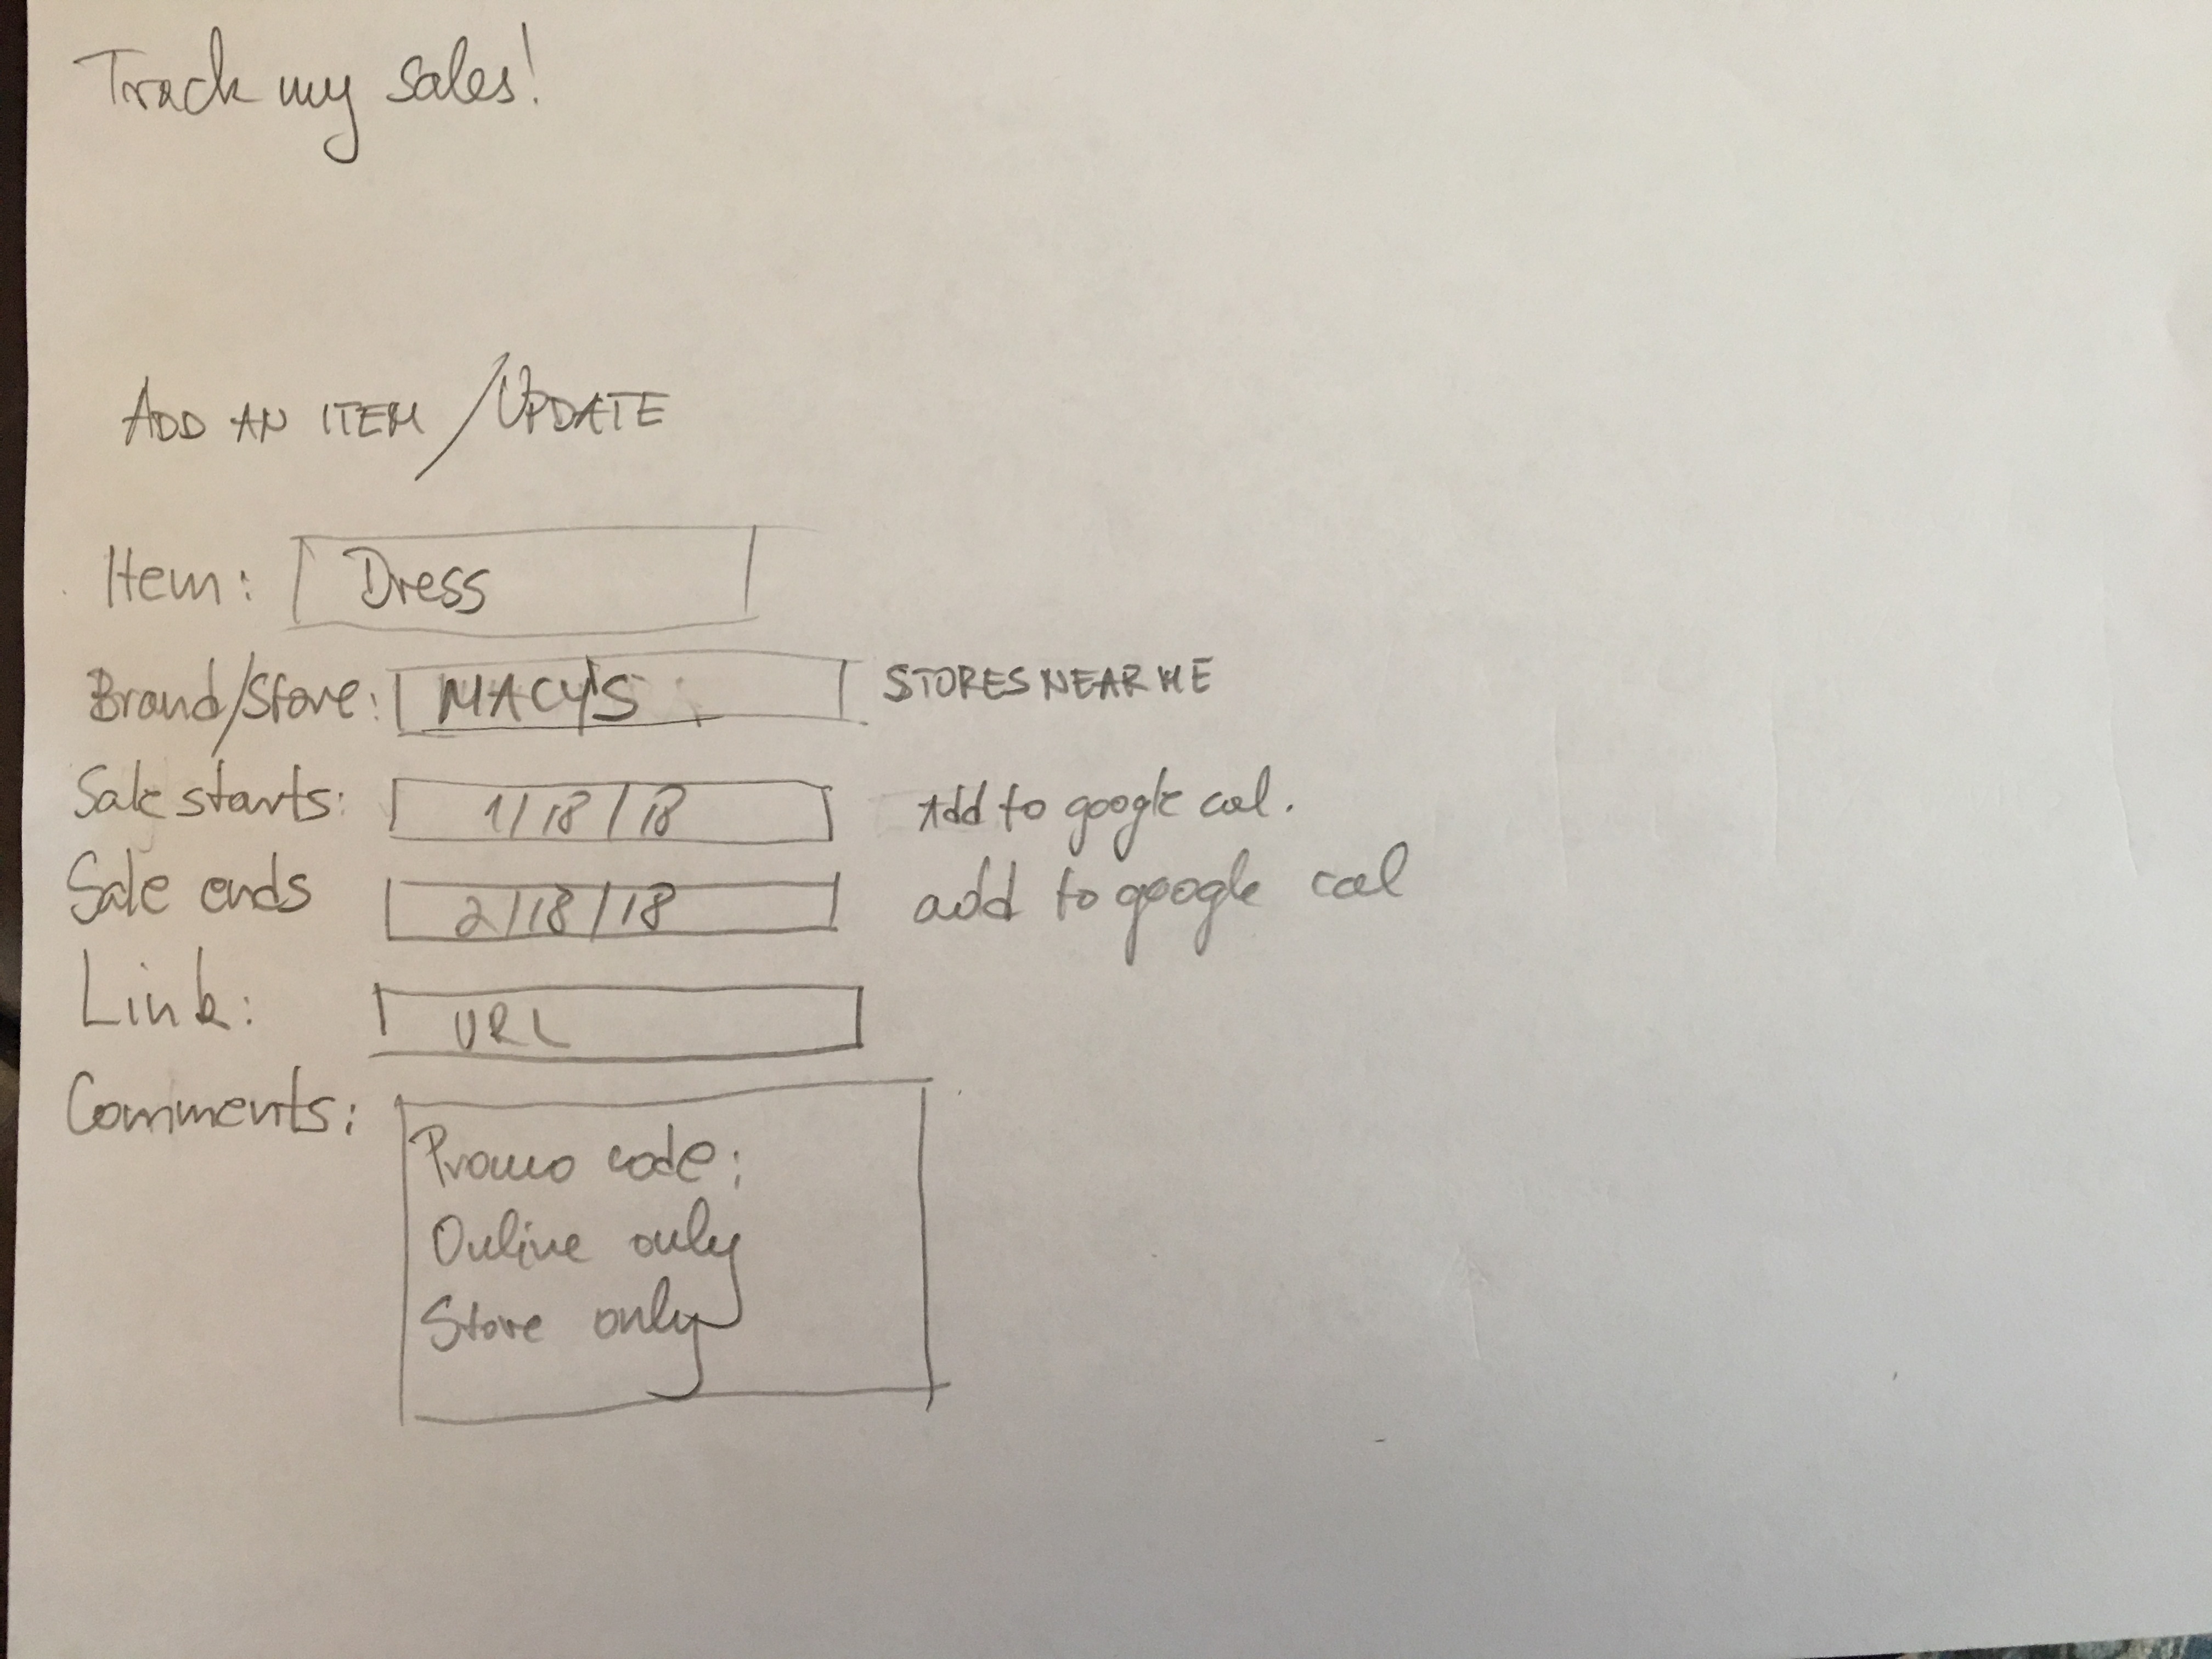 Track my sales!
ADD AN ITEM / UPDATE
Item: Dress
Brand/Store: MACY'S STORES NEAR ME
Sale starts: 1/18/18 Add to google cal.
Sale ends 2/18/18 add to google cal
Link: URL
Comments: Promo code:
Online only
Store only